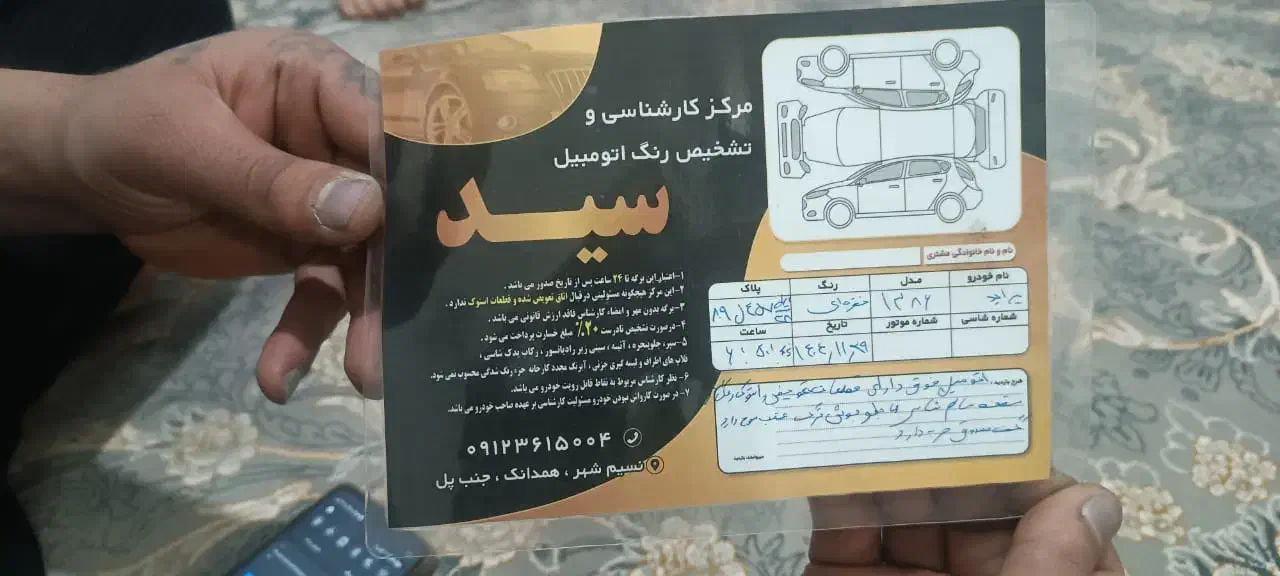 مرکز کارشناسی و
تشخیص رنگ اتومبیل
سید
۱-اعتبار این برگه تا ۲۴ ساعت پس از تاریخ صدور می باشد .
۲-این مرکز هیچگونه مسئولیتی در قبال اتاق تعویض شده و قطعات استوک ندارد .
۳-برگه بدون مهر و امضاء کارشناس فاقد ارزش قانونی می باشد .
۴-در صورت تشخیص نادرست ۲۰٪ مبلغ خسارت پرداخت می شود .
۵-سپر ، جلوپنجره ، آئینه ، سینی زیر رادیاتور ، رکاب یدک شاسی ،
قلاب های اطراف و لیسه گیری جزئی ، آبرنگ مجدد کارخانه جزء رنگ شدگی محسوب نمی شود.
۶- نظر کارشناس مربوط به نقاط قابل رویت خودرو می باشد.
۷- در صورت کارواش نبودن خودرو مسئولیت کارشناسی بر عهده صاحب خودرو می باشد.
۰۹۱۲۳۶۱۵۰۰۴
نسیم شهر ، همدانک ، جنب پل
نام و نام خانوادگی مشتری
نام خودرو مدل رنگ پلاک
پراید ۱۳۸۶ نقره‌ای
شماره شاسی شماره موتور تاریخ ساعت
شرح بازدید: اتومبیل فوق دارای قطعات تعویضی و استوک رنگ
عقب موج دارد